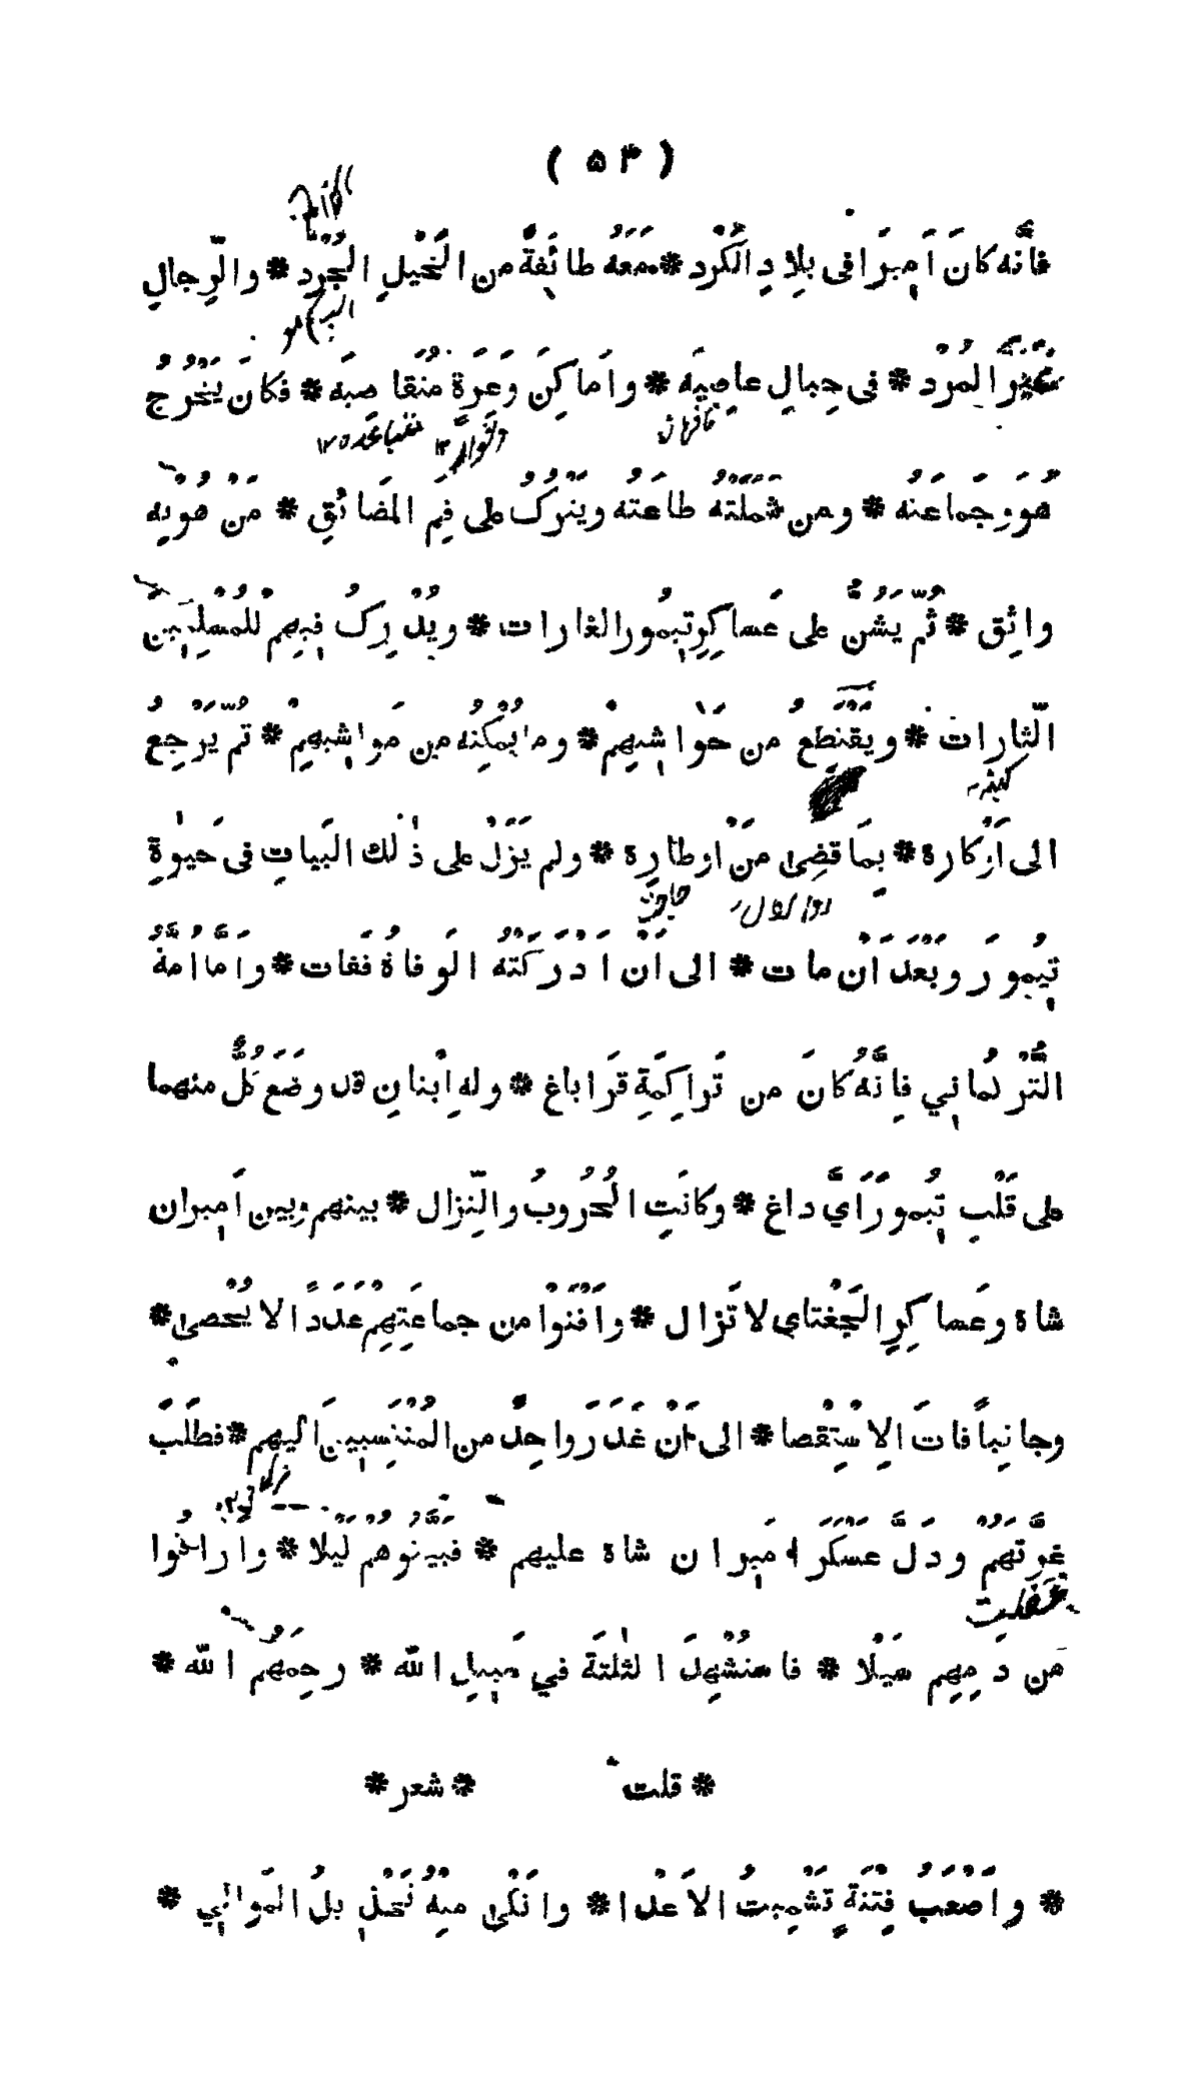 ( ۵۴ )
فَاِنَّه كانَ اَمِيرًا فى بِلادِ الكُرْد * مَعَهُ طائِفَةٌ من الخَيْلِ الجُرْد * والرِّجالِ
غَيْرِ المُرْد * فى جِبالٍ عاصِيَه * واَماكِنَ وَعَرَةٍ مُتَقاصِيَه * فكانَ يَخْرُجُ
هُوَ وجَماعَتُه * ومن شَمِلَتْهُ طاعَتُه ويَتْرُكُ على فَمِ المَضائقِ * مَنْ هُوَ بِه
واثِق * ثُمّ يَشُنُّ على عَساكِرِ تِيمُور الغارات * ويُدْرِكُ فيهِمْ للمُسْلِمِينَ
الثّارات * ويَقْتَطِعُ من حَواشِيهِمْ * وما يُمْكِنُه من مَواشِيهِمْ * ثُمّ يَرْجِعُ
الى اَوْكارِه * بِمَا قضى مَنْ اَوطارِه * ولم يَزَلْ على ذٰلك البَياتِ فى حَيوٰةِ
تِيمُورَ وبَعْدَ اَنْ مات * الى اَنْ اَدْرَكَتْهُ الوَفاةُ ففَات * واَمَّا اُمَّةُ
التُّرْكُمانِي فاِنَّهُ كانَ من تَراكِمَةِ قَراباغ * وله اِبْنانِ قد وضَع كُلٌّ منهما
على قَلْبِ تِيمُورَ اَيَّ داغ * وكانَتِ الحُرُوبُ والنِّزال * بينهم وبين اَمِيران
شاه وعَساكِرِ الجَغْتاي لا تَزال * واَفْنَوْا من جماعَتِهِمْ عَدَدًا لا يُحْصى *
وجانِباً فاتَ الاِسْتِقْصا * الى اَنْ غَدَرَ واحِدٌ من المُنْتَسِبِينَ اليهم * فطَلَبَ
غِرَّتَهُم ودَلَّ عَسْكَرَ اَمِيران شاه عليهم * فبَيَّتُوهُم لَيْلا * واَراقُوا
من دَمِهِم سَيْلا * فاستُشْهِدَ الثلٰثَة في سَبِيلِ اللّه * رحِمَهُم اللّه *
* قلت * شعر *
* واَصْعَبُ فِتْنَةٍ تَشْمِيتُ الاَعْدا * واَنْكى مِنْهُ تَخْذِيلُ المَوالي *